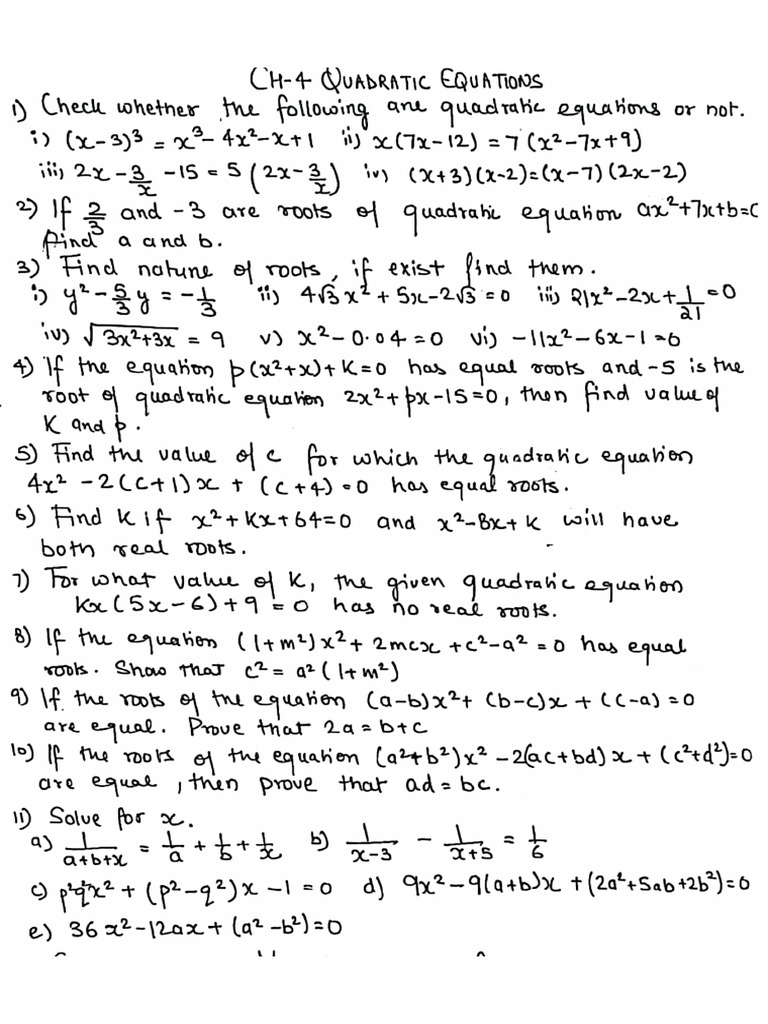 CH-4 QUADRATIC EQUATIONS
1) Check whether the following are quadratic equations or not.
i) (x-3)³ = x³-4x²-x+1 ii) x(7x-12) = 7(x²-7x+9)
iii) 2x - 3/x - 15 = 5(2x - 3/x) iv) (x+3)(x-2)=(x-7)(2x-2)
2) If 2/3 and -3 are roots of quadratic equation ax²+7x+b=0
find a and b.
3) Find nature of roots, if exist find them.
i) y² - 5/3 y = -1/3 ii) 4√3x² + 5x-2√3 = 0 iii) 21x²-2x+1/21=0
iv) √3x²+3x = 9 v) x²-0.04=0 vi) -11x²-6x-1=0
4) If the equation p(x²+x)+K=0 has equal roots and -5 is the
root of quadratic equation 2x²+px-15=0, then find value of
K and p.
5) Find the value of c for which the quadratic equation
4x² -2(c+1)x + (c+4)=0 has equal roots.
6) Find K if x²+Kx+64=0 and x²-8x+k will have
both real roots.
7) For what value of K, the given quadratic equation
Kx(5x-6)+9=0 has no real roots.
8) If the equation (1+m²)x²+ 2mcx +c²-a²=0 has equal
roots. Show that c²= a²(1+m²)
9) If the roots of the equation (a-b)x²+ (b-c)x + (c-a)=0
are equal. Prove that 2a=b+c
10) If the roots of the equation (a²+b²)x² -2(ac+bd)x+(c²+d²)=0
are equal, then prove that ad=bc.
11) Solve for x.
a) 1/(a+b+x) = 1/a + 1/b + 1/x b) 1/(x-3) - 1/(x+5) = 1/6
c) p²q²x² + (p²-q²)x -1 = 0 d) 9x²-9(a+b)x+(2a²+5ab+2b²)=0
e) 36x²-12ax+(a²-b²)=0